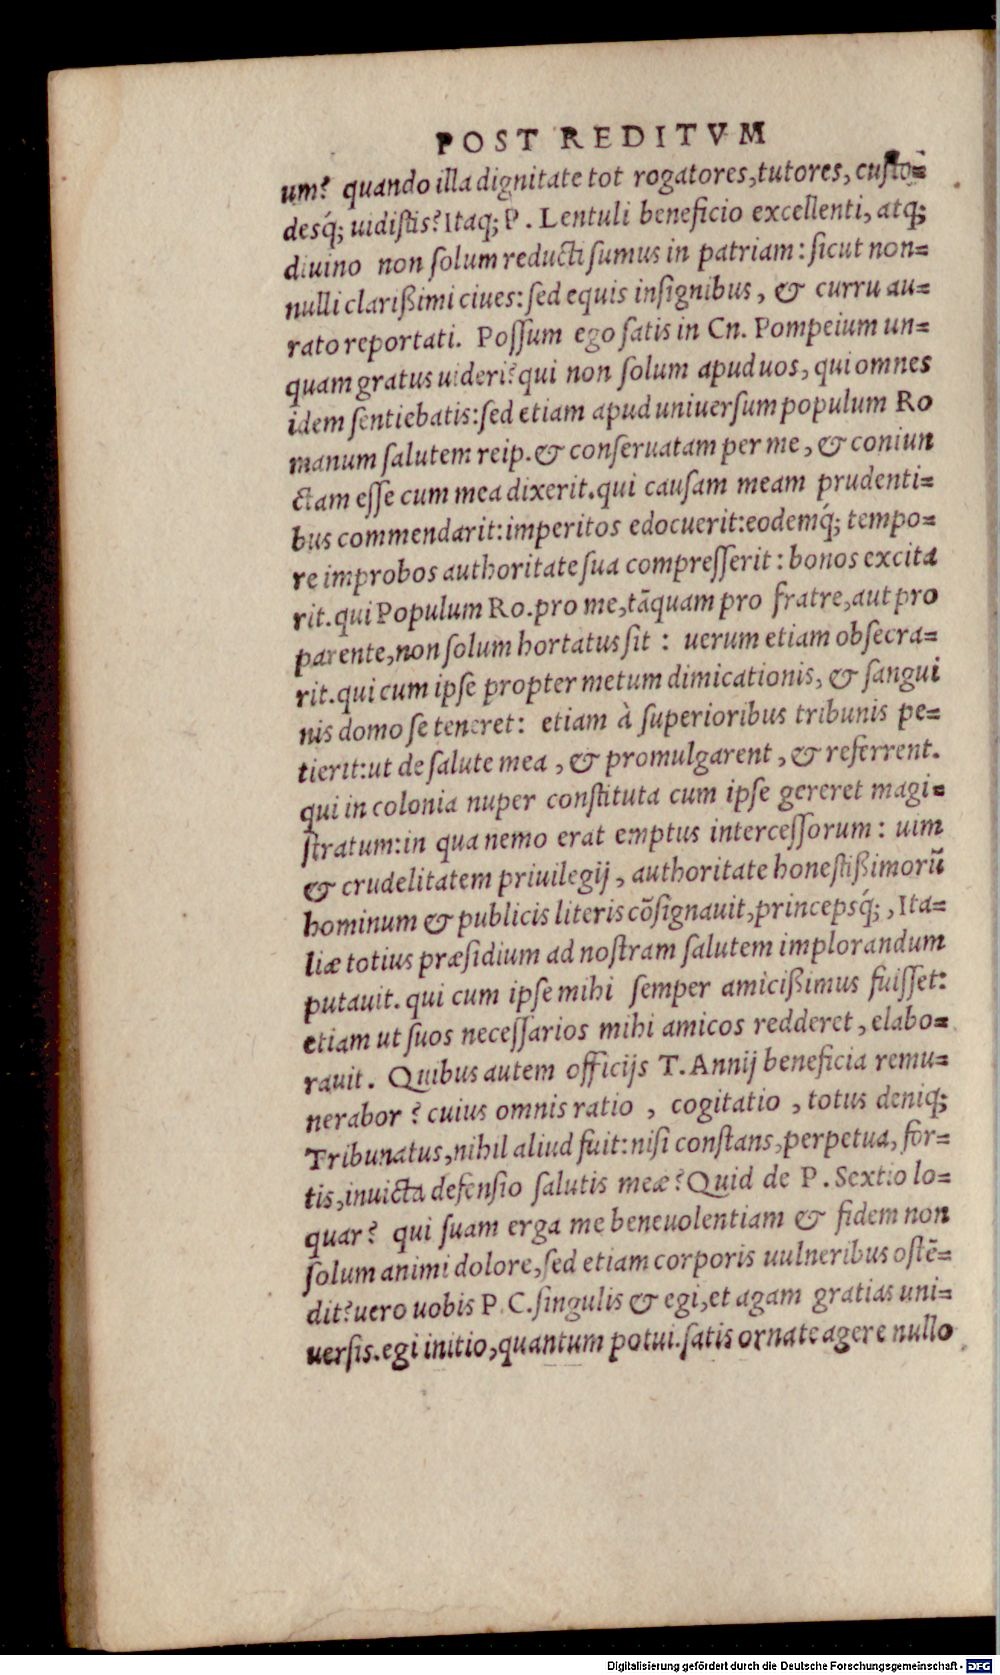 POST REDITVM
um? quando illa dignitate tot rogatores, tutores, custo=
desq́; uidistis? Itaq; P. Lentuli beneficio excellenti, atq;
diuino non ſolum reducti ſumus in patriam: ſicut non=
nulli clarißimi ciues: ſed equis inſignibus, & curru au=
rato reportati. Poſſum ego ſatis in Cn. Pompeium un=
quam gratus uideri? qui non ſolum apud uos, qui omnes
idem ſentiebatis: ſed etiam apud uniuerſum populum Ro
manum ſalutem reip. & conſeruatam per me, & coniun
ctam eſſe cum mea dixerit. qui cauſam meam prudenti=
bus commendarit: imperitos edocuerit: eodemq́; tempo=
re improbos authoritate ſua compreſſerit: bonos excita
rit. qui Populum Ro. pro me, tāquam pro fratre, aut pro
parente, non ſolum hortatus ſit : uerum etiam obſecra=
rit. qui cum ipſe propter metum dimicationis, & ſangui
nis domo ſe teneret: etiam à ſuperioribus tribunis pe=
tierit: ut de ſalute mea, & promulgarent, & referrent.
qui in colonia nuper conſtituta cum ipſe gereret magi=
ſtratum: in qua nemo erat emptus interceſſorum: uim
& crudelitatem priuilegij, authoritate honeſtißimorū
hominum & publicis literis cōſignauit, princepsq́;, Ita=
liæ totius præſidium ad noſtram ſalutem implorandum
putauit. qui cum ipſe mihi ſemper amicißimus fuiſſet:
etiam ut ſuos neceſſarios mihi amicos redderet, elabo=
rauit. Quibus autem officijs T. Annij beneficia remu=
nerabor? cuius omnis ratio, cogitatio, totus deniq;
Tribunatus, nihil aliud fuit: niſi conſtans, perpetua, for=
tis, inuicta defenſio ſalutis meæ? Quid de P. Sextio lo=
quar? qui ſuam erga me beneuolentiam & fidem non
ſolum animi dolore, ſed etiam corporis uulneribus oſtē=
dit? uero uobis P. C. ſingulis & egi, et agam gratias uni=
uerſis. egi initio, quantum potui. ſatis ornate agere nullo
Digitalisierung gefördert durch die Deutsche Forschungsgemeinschaft - DFG